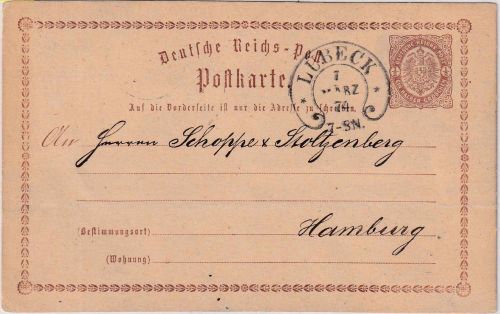 Deutsche Reichs-Post
Postkarte
LÜBECK
7
MÄRZ
74
7-8N.
Auf die Vorderseite ist nur die Adresse zu schreiben.
An Herren Schoppe & Stoltzenberg
Hamburg
(Bestimmungsort)
(Wohnung)